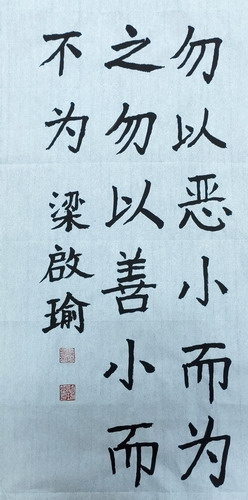 勿以恶小而为
之勿以善小而
不为 梁啟瑜